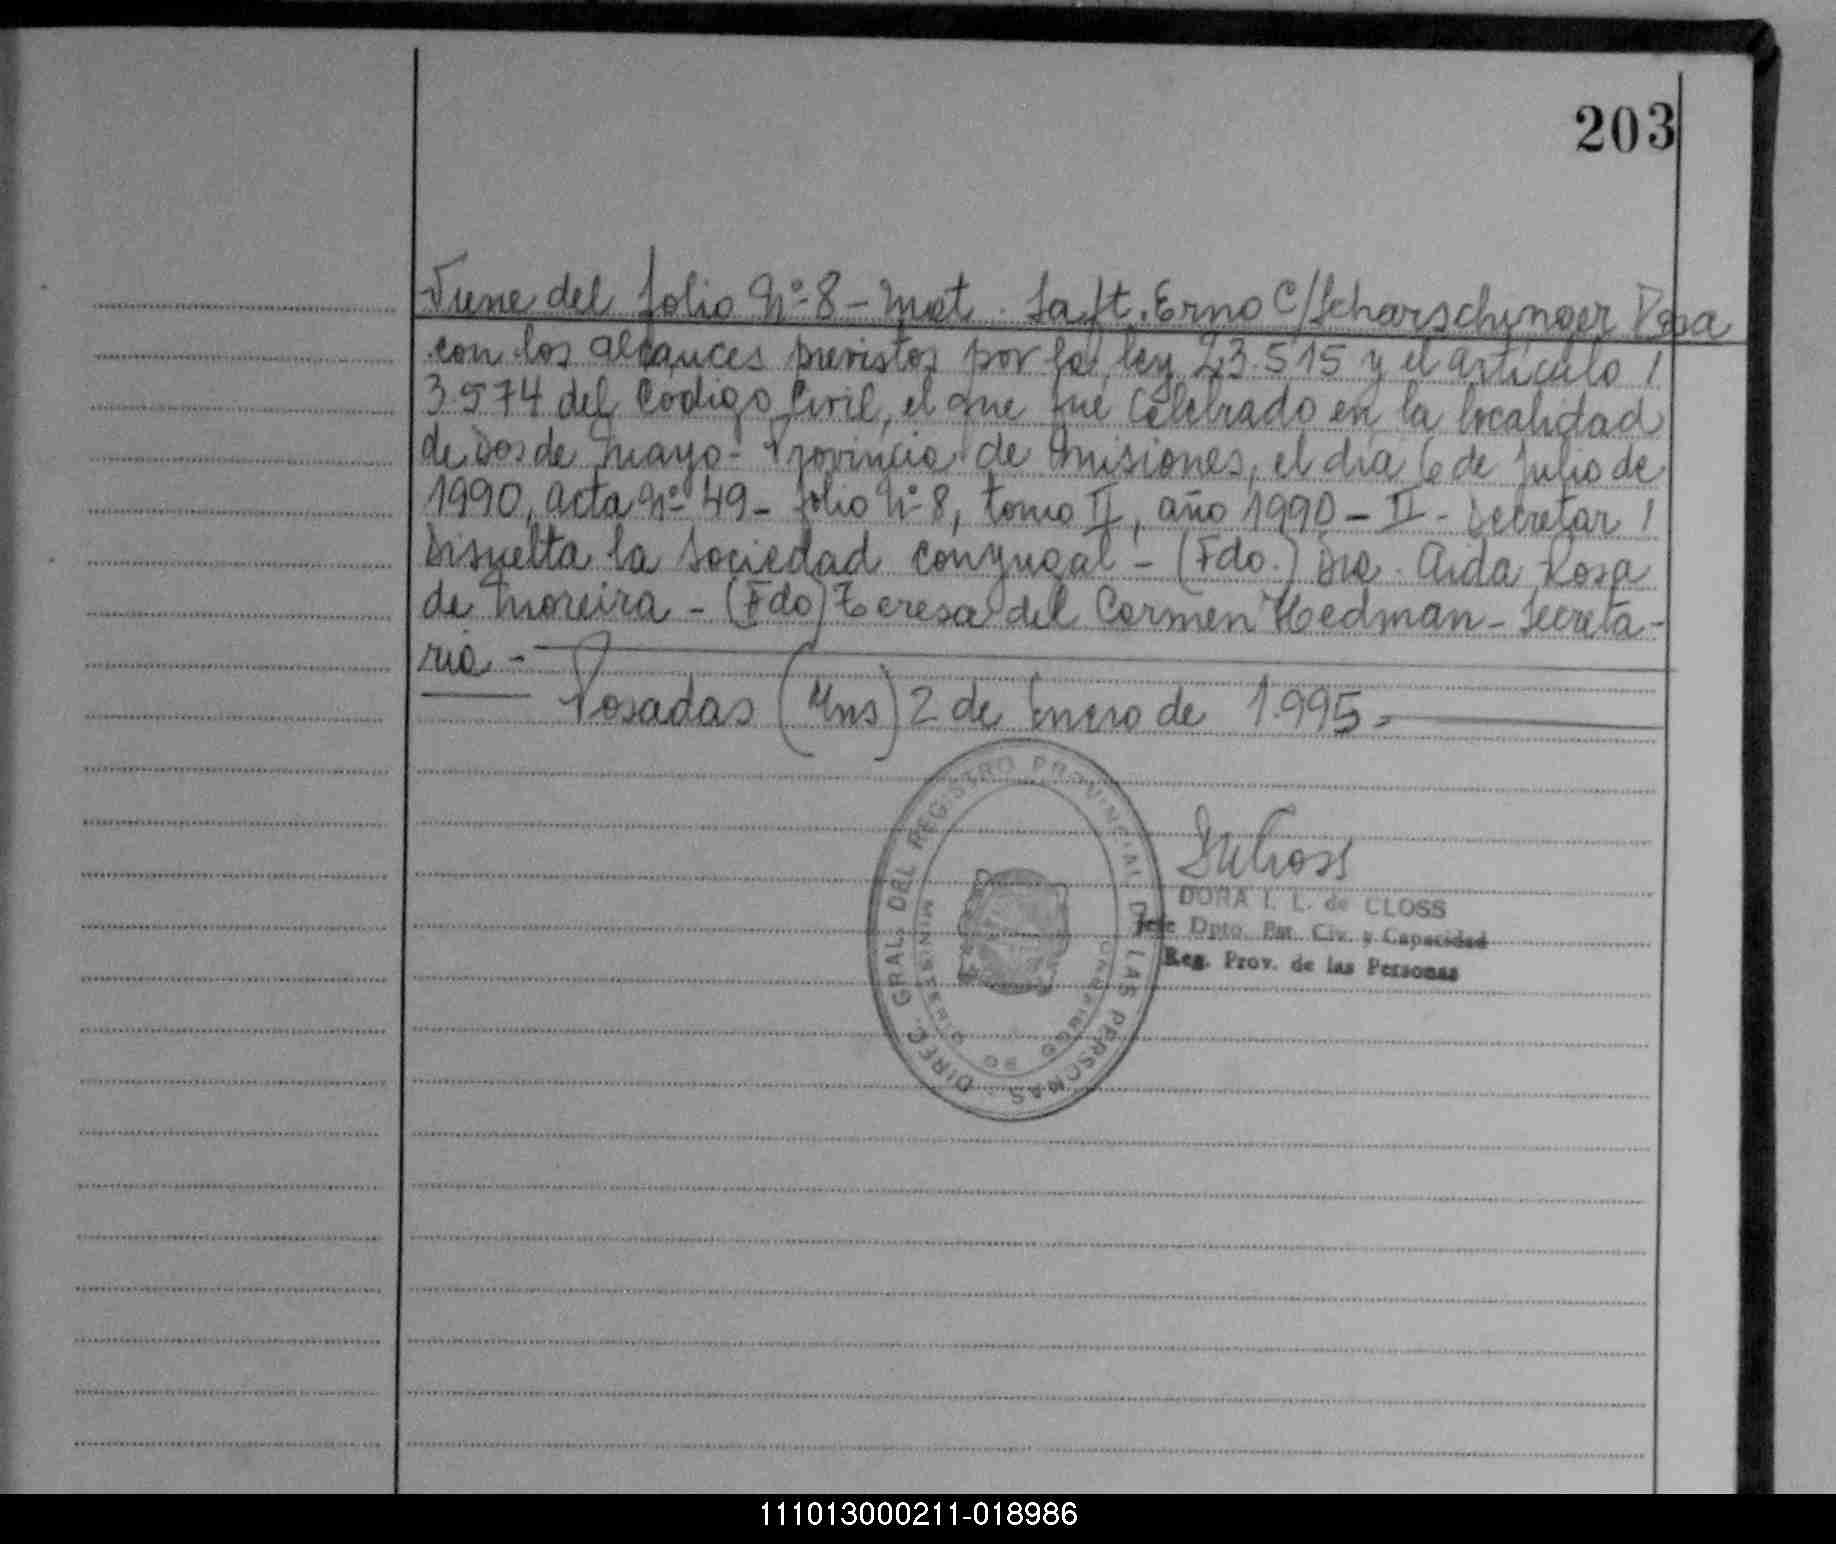 203
Viene del folio Nº 8 - Mat. Saft. Erno C/ Scharschinger Rosa
con los alcances previstos por la ley 23.515 y el artículo /
3.574 del Código Civil, el que fue Celebrado en la localidad
de Dos de Mayo - Provincia de Misiones, el día 6 de Julio de
1990, acta Nº 49 - folio Nº 8, tomo II, año 1990 - II - Decretar /
Disuelta la Sociedad conyugal - (Fdo.) Dra. Aida Rosa
de Moreira - (Fdo) Teresa del Carmen Hedman - Secreta-
ria -
Posadas (Mns) 2 de Enero de 1.995 -
DIREC. GRAL. DEL REGISTRO PROVINCIAL DE LAS PERSONAS
MINISTERIO DE GOBIERNO
DORA I. L. de CLOSS
Jefe Dpto. Est. Civ. y Capacidad
Reg. Prov. de las Personas
111013000211-018986